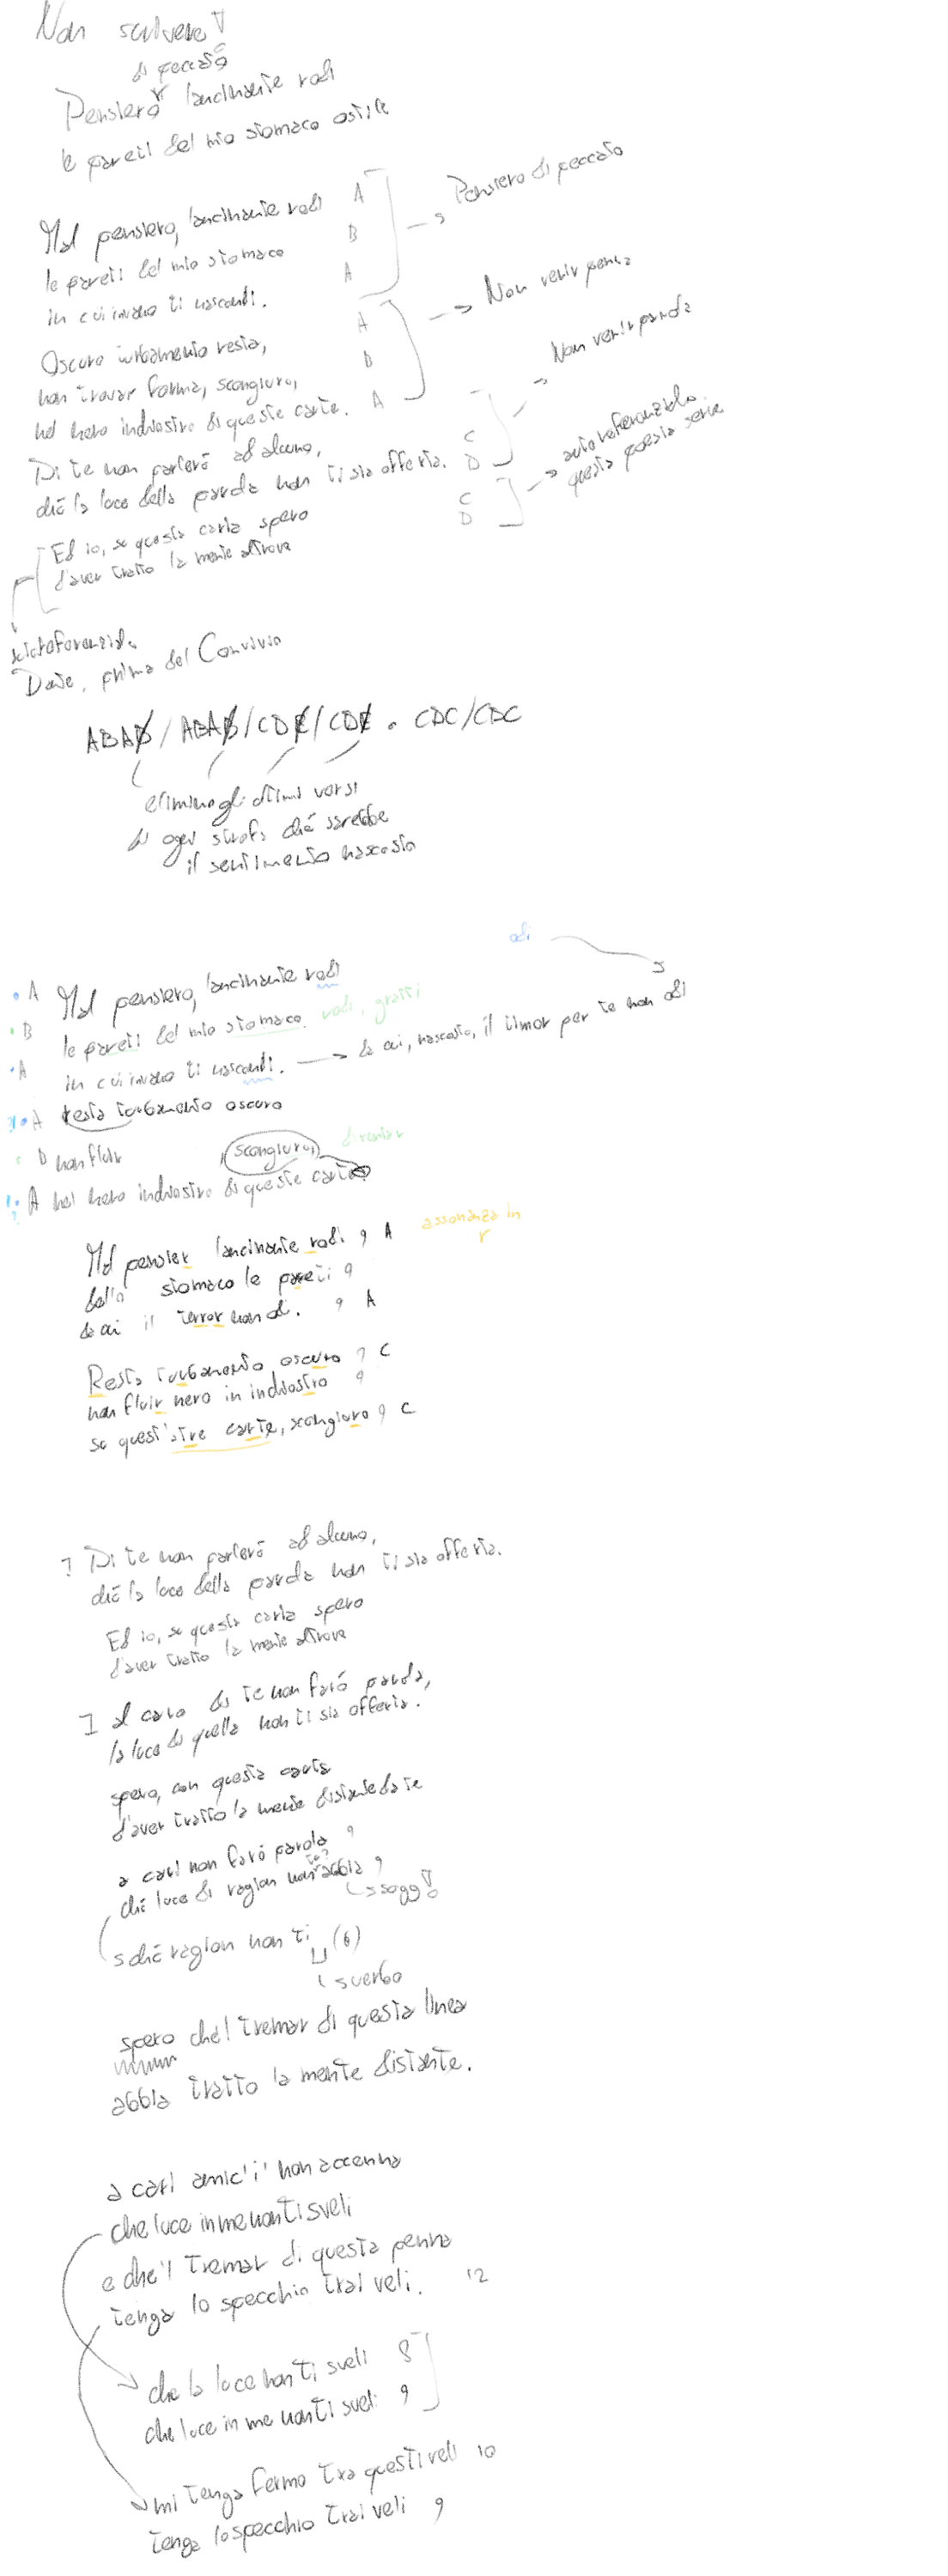 Non scrivere!
di peccato
Pensiero lancinante rodi
le pareti del mio stomaco ostile
Mal pensiero, lancinante rodi A
le pareti del mio stomaco B
in cui invano ti nascondi. A
→ Pensiero di peccato
Oscuro turbamento resta, A
non trovar forma, scongiuro, B
nel nero inchiostro di queste carte. A
→ Non venir penna
Di te non parlerò ad alcuno, C
ché la luce della parola non ti sia offerta. D
→ Non venir parola
Ed io, su questa carta spero C
d'aver tratto la mente altrove D
→ autoreferenziale
questa poesia serve
autoreferenziale
Dante, prima del Convivio
ABAB / ABAB / CDE / CDE . CDC / CDC
elimino gli ultimi versi
di ogni strofa ché sarebbe
il sentimento nascosto
odi
A Mal pensiero, lancinante rodi
B le pareti del mio stomaco. rodi, gratti
A in cui invano ti nascondi. → da cui, nascosto, il timor per te non odi
A resta turbamento oscuro
B non fluir scongiuro, diventar
A nel nero inchiostro di queste carte
?
Mal pensier lancinante rodi 9 A
dello stomaco le pareti 9
da cui il terror non odi. 9 A
assonanza in
r
Resta turbamento oscuro 9 C
non fluir nero in inchiostro 9
su quest'atre carte, scongiuro 9 C
? Di te non parlerò ad alcuno,
ché la luce della parola non ti sia offerta.
Ed io, su questa carta spero
d'aver tratto la mente altrove
I A caro di te non farò parola,
la luce di quella non ti sia offerta.
spero, con questa carta
d'aver tratto la mente distante da te
a cari non farò parola 9
ché luce di ragion non abbia 9
sogg!
ché ragion non ti (6)
verbo
spero che'l tremar di questa linea
abbia tratto la mente distante.
a cari amici i' non accenna
che luce in me non ti sveli
e che'l tremar di questa penna
tenga lo specchio trai veli. 12
che la luce non ti sveli 8
che luce in me non ti sveli 9
mi tenga fermo tra questi veli 10
tenga lo specchio trai veli 9